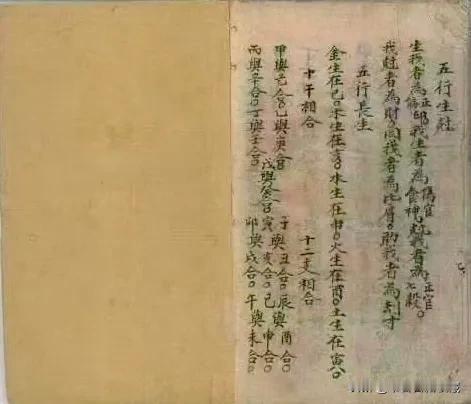 五行生尅
生我者為正偏印。我生者為傷官食神。尅我者為正官七殺。
我尅者為財。同我者為比肩。助我者為刦才
五行長生
金生在巳。木生在亥。水生在申。火生在酉。土生在寅
十干相合
甲與己合。乙與庚合。
丙與辛合。丁與壬合。
戊與癸合。
十二支相合
子與丑合。辰與酉合。
寅與亥合。巳與申合。
卯與戌合。午與未合。